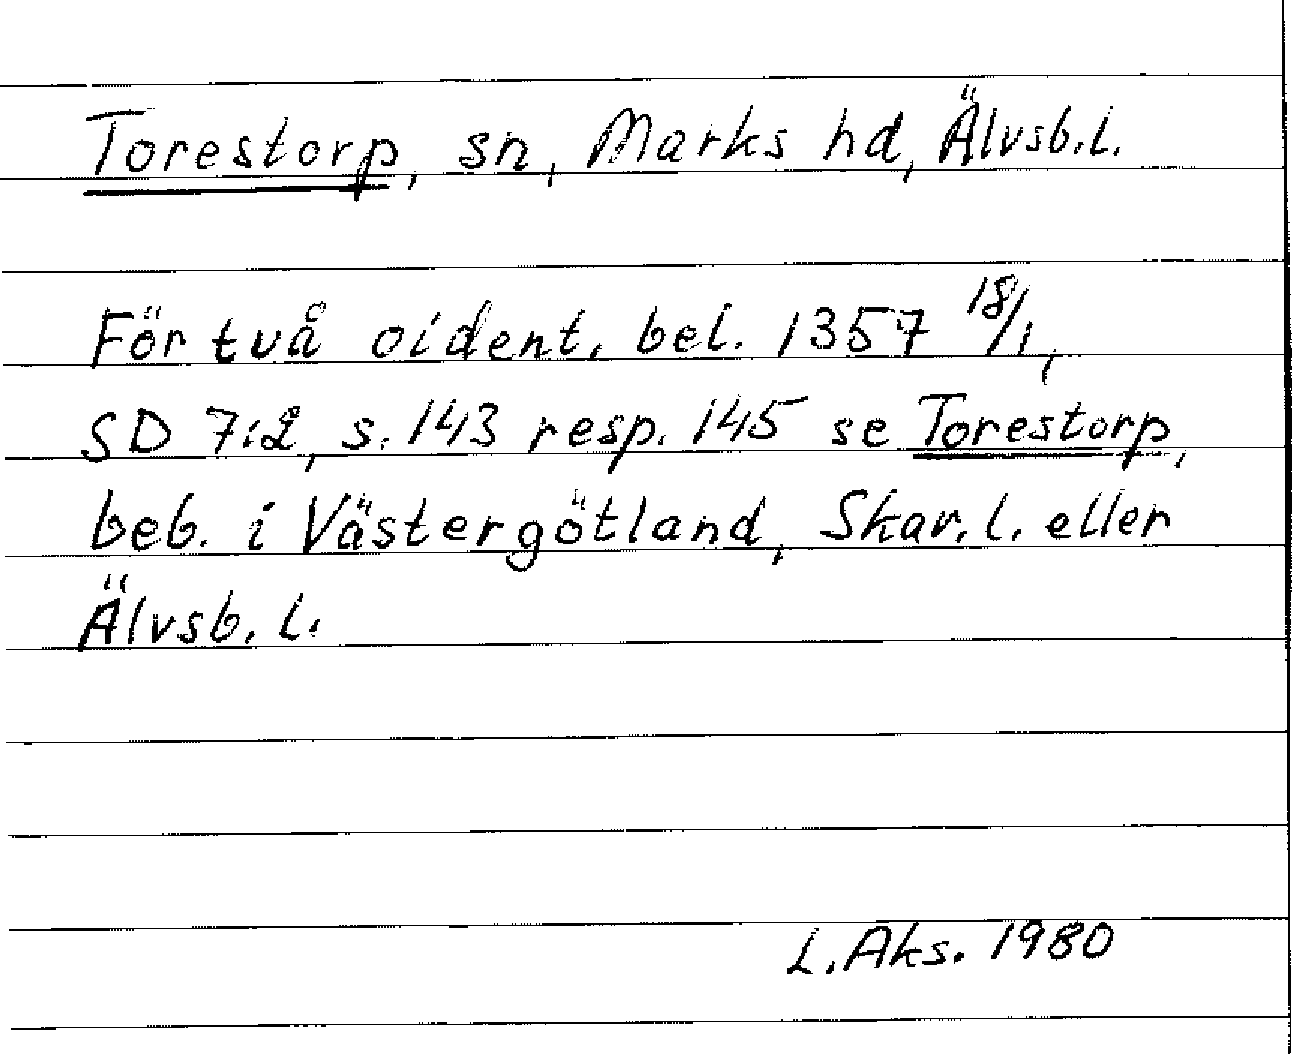 Torestorp, sn, Marks hd, Älvsb.l.
För två oident. bel. 1357 18/1,
SD 7:2, s. 143 resp. 145 se Torestorp,
beb. i Västergötland, Skar. l. eller
Älvsb. l.
L. Aks. 1980